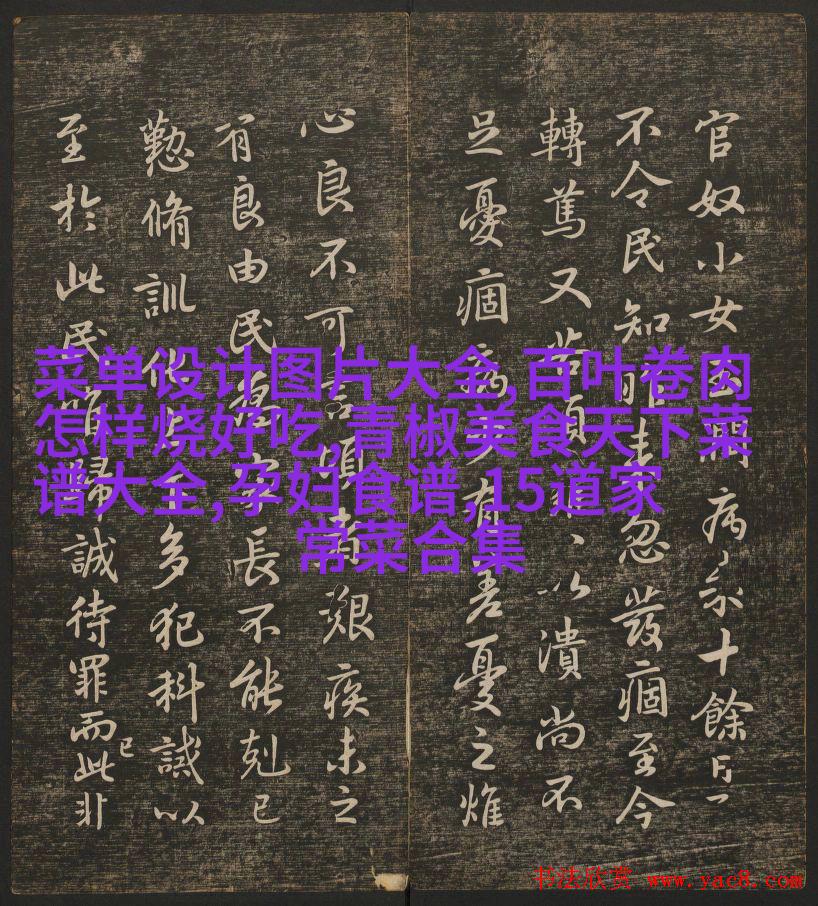 官奴小女玉潤病來十餘日
不令民知昨來忽發痼至今
轉篤又苦頭癰、以潰尚不
足憂痼病少有差憂之燋
心良不可言頃者艱疾未之
有良由民為家長不能剋己
懃脩訓化上下多犯科誡以
至於此民唯歸誠待罪而此非
已
菜单设计图片大全,百叶卷肉
怎样烧好吃,青椒美食天下菜
谱大全,孕妇食谱,15道家
常菜合集
书法欣赏 www.yac8.com